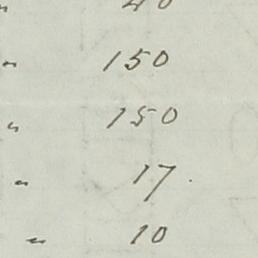 " 40
" 150
" 150
" 17.
" 10